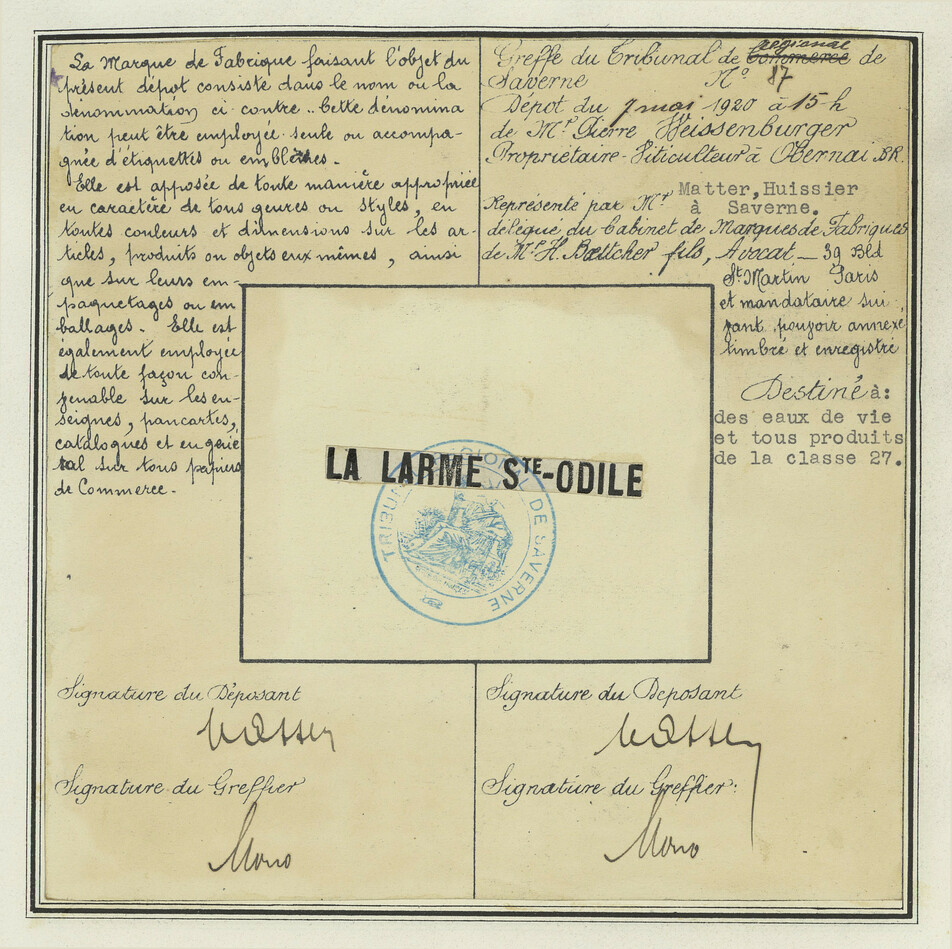 La Marque de Fabrique faisant l'objet du
présent dépot consiste dans le nom ou la
dénomination ci contre.. Cette dénomina
tion peut être employée seule ou accompa-
gnée d'étiquettes ou emblèmes.
Elle est apposée de toute manière appropriée
en caractère de tous genres ou styles, en
toutes couleurs et dimensions sur les ar-
ticles, produits ou objets eux mêmes, ainsi
que sur leurs em-
paquetages ou em
ballages. Elle est
également employée
de toute façon con-
venable sur les en-
seignes, pancartes,
catalogues et en géné
ral sur tous papiers
de Commerce.
Greffe du Tribunal de Commerce régional de
Saverne N° 87
Dépot du 7 mai 1920 à 15 h
de Mr Pierre Weissenburger
Propriétaire-Viticulteur à Obernai BR.
Représenté par Mr Matter, Huissier
à Saverne.
délégué du Cabinet de Marques de Fabriques
de Mr H. Bœttcher fils, Avocat _ 39 Bld
St Martin Paris
et mandataire sui
vant pouvoir annexé
timbré et enregistré
Destiné à:
des eaux de vie
et tous produits
de la classe 27.
LA LARME STE-ODILE
TRIBUNAL RÉGIONAL DE SAVERNE
Signature du Déposant
Signature du Greffier
Signature du Déposant
Signature du Greffier: